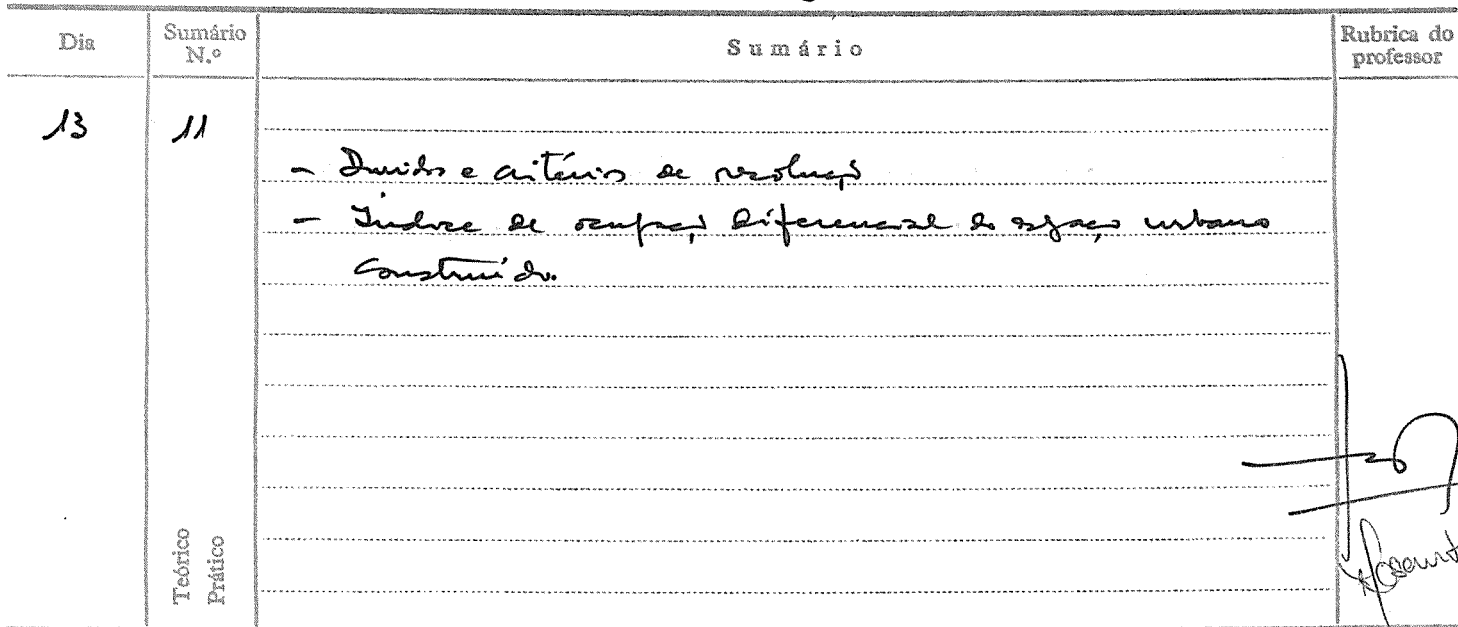 Dia
Sumário N.º
Sumário
Rubrica do professor
13
11
- e critérios de resoluçã
- Índice de ocupaçã diferencial do espaço urbano
construído.
Teórico
Prático